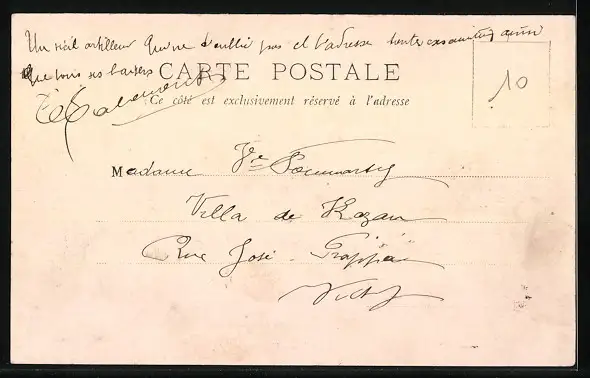 Un vieil artilleur qui ne t'oublie pas et t'adresse toutes ses amitiés ainsi
que tous ses baisers
CARTE POSTALE
10
Ce côté est exclusivement réservé à l'adresse
Madame Vve
Villa de Kazan
Rue José
Vichy